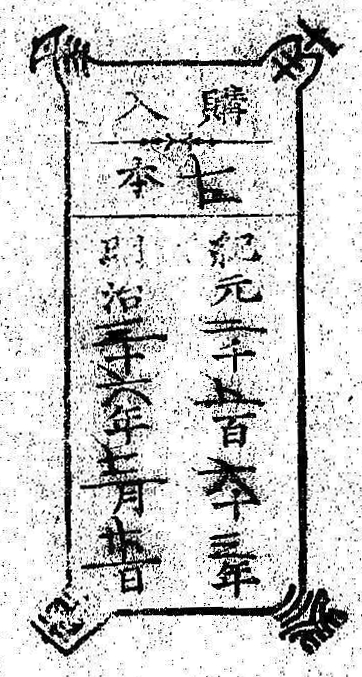 購入
七本
紀元二千五百六十三年
明治三十六年七月廿日